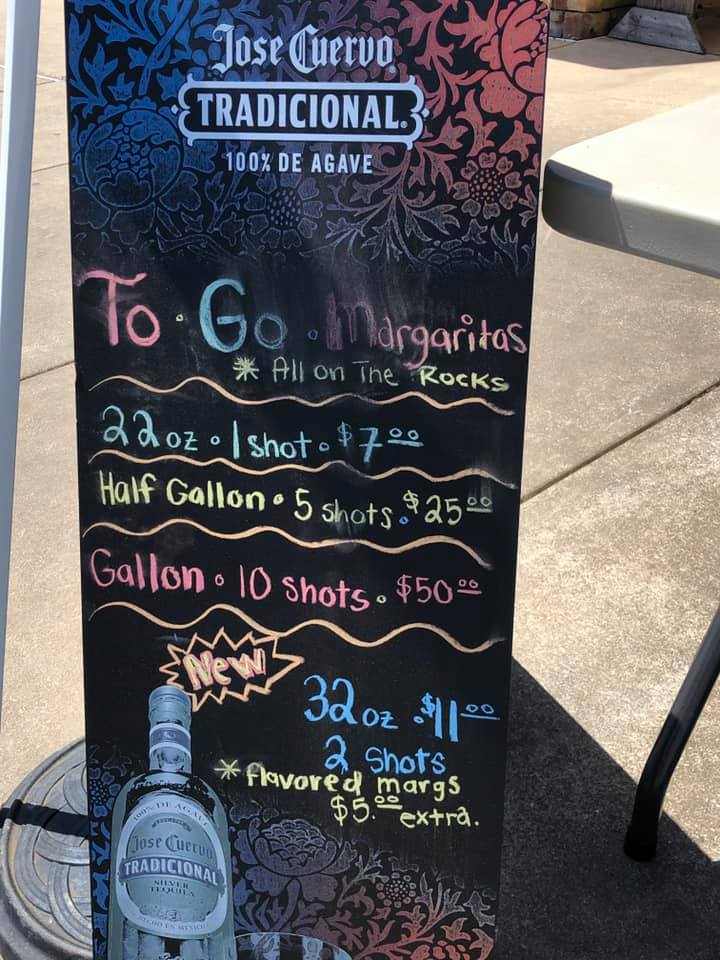 Jose Cuervo
TRADICIONAL.
100% DE AGAVE
To · Go · Margaritas
* All on The Rocks
22oz • 1 shot • $7.00
Half Gallon • 5 shots. $25.00
Gallon • 10 Shots. $50.00
New
32oz . $11.00
2 Shots
* flavored margs
$5.00 extra.
100% DE AGAVE
Jose Cuervo
TRADICIONAL
SILVER
TEQUILA
HECHO EN MEXICO